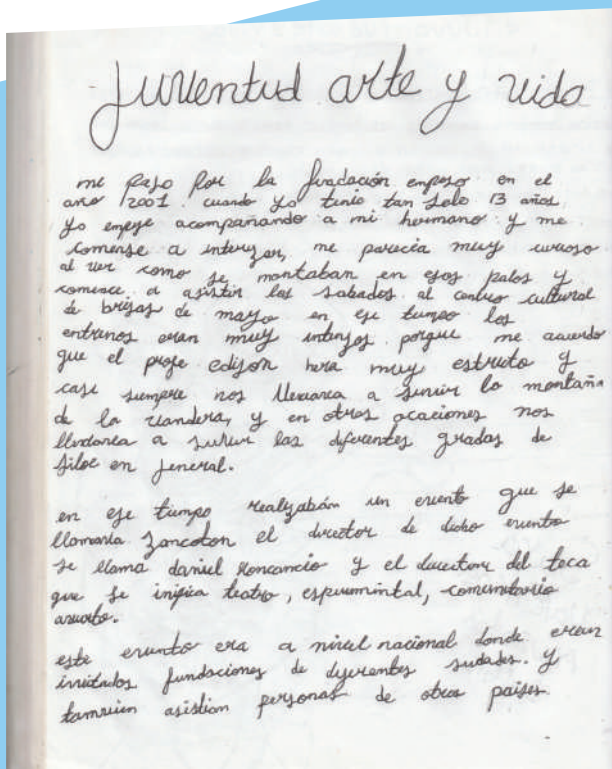 Juventud arte y vida
me paso por la fundación empeso en el
año 2001. cuando yo tenia tan solo 13 años.
yo empeze acompañando a mi hermano y me
comense a interezar, me parecia muy curioso
al ver como se montaban en esos palos y
comence a asistir los sabados al centro cultural
de brisas de mayo en ese tiempo los
entrenos eran muy intensos porque me acuerdo
que el profe edison hera muy estricto y
casi siempre nos llevaba a subir la montaña
de la bandera, y en otras ocaciones nos
llevaba a subir las diferentes gradas de
siloe en jeneral.
en ese tiempo realizaban un evento que se
llamaba zancoton el director de dicho evento
se llama daniel roncancio y el director del teca
que se inifica teatro, experimental, comunitario
este evento era a nivel nacional donde eran
invitados fundaciones de diferentes siudades. y
tambien asistian personas de otros paises.